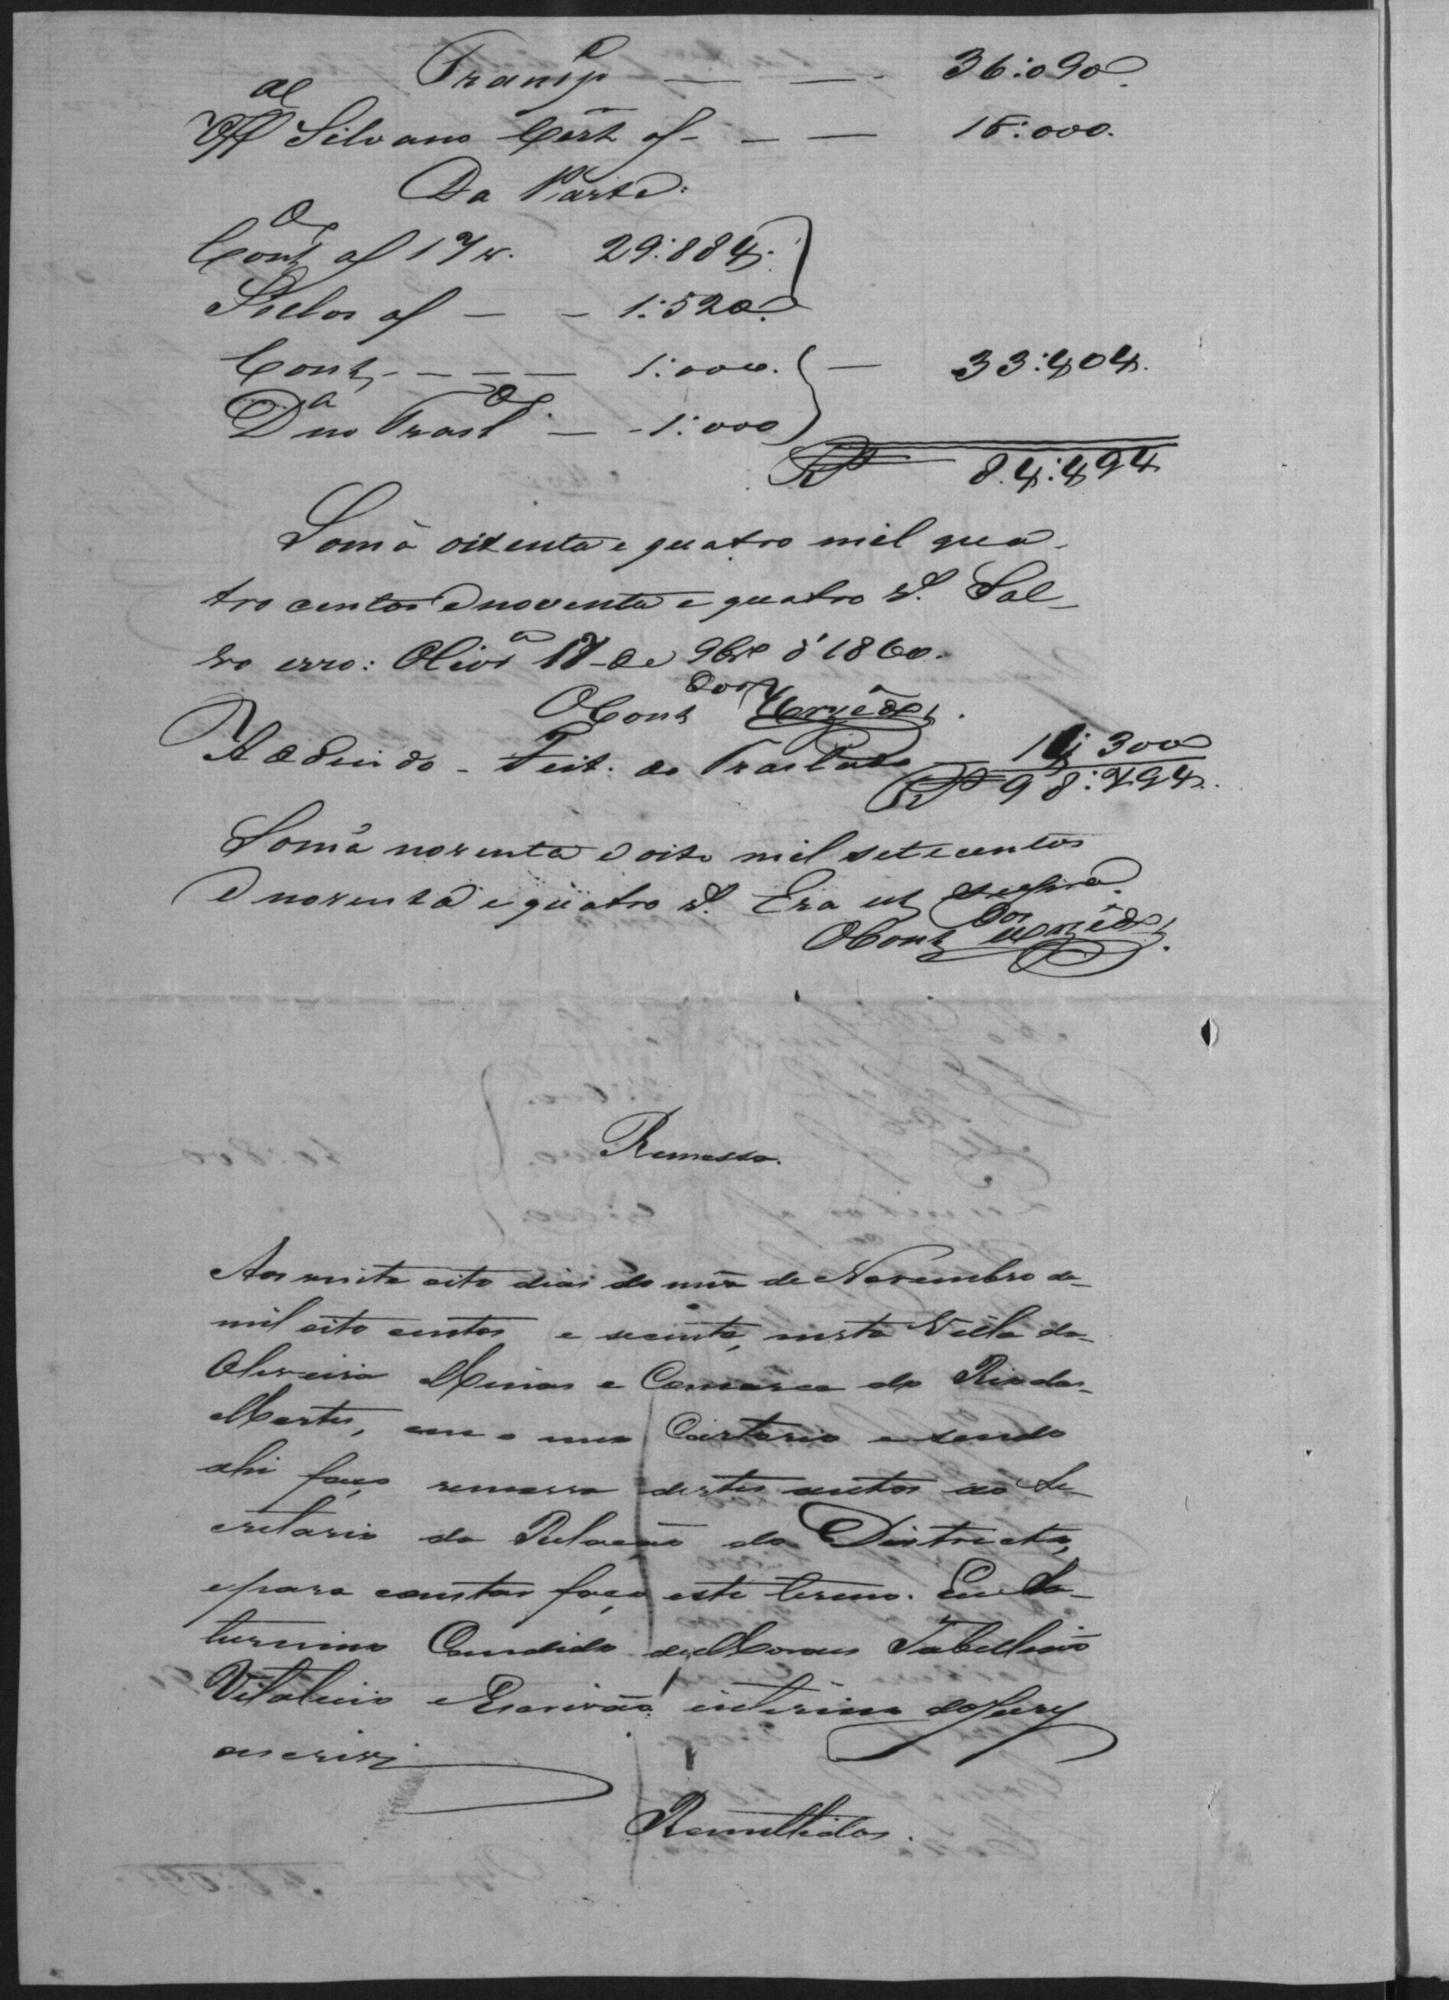 Transp.e — — 36:090.
Off.al Silvano Cert af — — 15:000.
Da Parte:
Cont.as af 17v. 29:884.
Sellos af — — 1:520.
Cont. — — — 1:000. — 33:404.
D.a no Trasl.do — 1:000
R$ 84:494
Somã oitenta e quatro mil qua-
tro centos e noventa e quatro r.s Sal-
vo erro: Olivr.a 17 de 9br.o d' 1860.
O Cont.dor
Addindo - Feit. do Traslado — 14:300
R$ 98:794.
Somã noventa e oito mil sete centos
e noventa e quatro r.s Era ut supra.
O Cont.dor
Remessa.
Aos vinte oito dias do mez de Novembro de
mil oito centos e secenta, nesta Villa da
Oliveira Minas e Comarca do Rio das
Mortes, em o meu Cartorio e sendo
ahi faço remessa destes autos ao Se-
cretario da Relação do Districto,
e para constar faço este termo. Eu Sa-
turnino Candido de Moraes Tabellião
Vitalicio e Escrivão interino do Jury
escrivi
Remettidos.